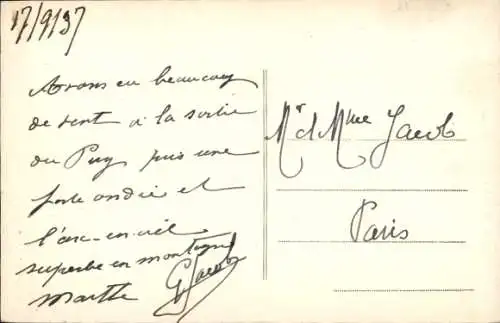 17/9/37
Avons eu beaucoup
de vent à la sortie
du Puy puis une
forte ondée et
l'arc-en-ciel
superbe en montagne
Marthe
G Jacob
Mr et Mme Jacob
Paris